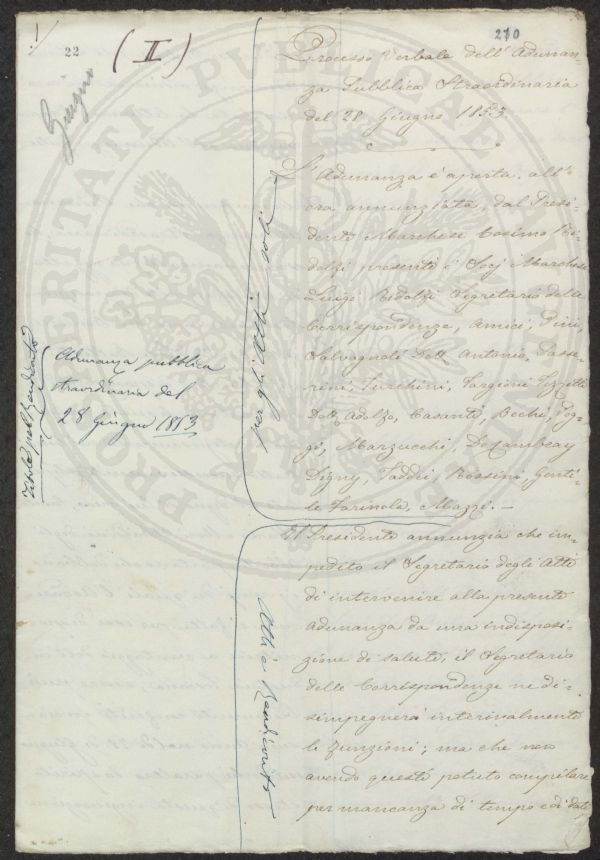 22
(II)
270
Giugno
Processo Verbale dell' Adunan-
za Pubblica Straordinaria
del 28 Giugno 1853
L' Adunanza è aperta all'
ora annunziata, dal Presi-
dente Marchese Cosimo Ri-
dolfi presenti i Socj Marchese
Luigi Ridolfi Segretario delle
Corrispondenze, Amici, Pini,
Salvagnoli Dott. Antonio, Passe-
rini, Turchini, Targioni Tozzetti
Dott. Adolfo, Casanti, Bechi, Pog-
gi, Marzucchi, De Cambray
Digny, Taddei, Rossini, Genti-
le Farinola, Mazzi. —
Il Presidente annunzia che im-
pedito il Segretario degli Atti
di intervenire alla presente
Adunanza da una indisposi-
zione di salute, il Segretario
delle Corrispondenze ne di-
simpegnerà interinalmente
le funzioni; ma che non
avendo questi potuto compilare
per mancanza di tempo e di dati
per gli Atti soli
Adunanza pubblica
straordinaria del
28 Giugno 1853
Titolo pel Rendiconto
Atti e Rendiconto
PROSPERITATI PUBLICAE AU